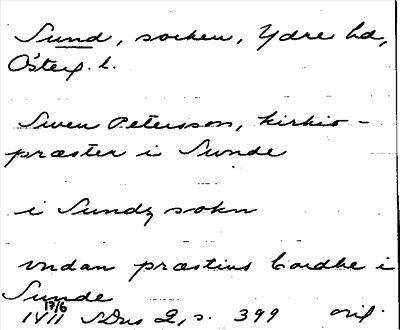 Sund, socken, Ydre hd,
Österg. l.
Swen Petersson, kirkio-
præster i Sunde
i Sundz sokn
vndan præstins bordhe i
Sunde
17/6
1411 SDns 2, s. 399 orig.